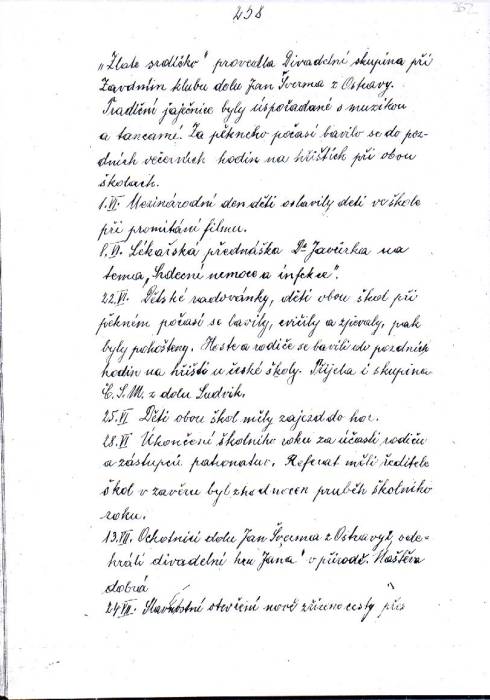 258
252
„Zlaté srdíčko" provedla Divadelní skupina při
Závodním klubu dolu Jan Šverma z Ostravy.
Tradiční jaječnice byly uspořádané s muzikou
a tancami. Za pěkného počasí bavilo se do poz-
dních večerních hodin na hřištích při obou
školách.
1.VI. Mezinárodní den dětí oslavily děti ve škole
při promítání filmu.
8.VI. Lékařská přednáška Dr Javůrka na
tema „Srdeční nemoce a infekce".
22.VI. Dětské radovánky, děti obou škol při
pěkném počasí se bavily, cvičily a zpívaly, pak
byly pohoštěny. Hoste a rodiče se bavili do pozdních
hodin na hřišti u české školy. Přijela i skupina
Č.S.M. z dolu Ludvík.
25.VI Děti obou škol měly zajezd do hor.
28.VI Ukončení školního roku za účasti rodičů
a zástupců patronatur. Referat měli ředitele
škol v zavěru byl zhodnocen průběh školního
roku.
13.VII. Ochotníci dolu Jan Šverma z Ostravy, sele-
hráli divadelní hru „Jana" v přírodě. Naštěva
dobrá
24.VII. Slavnostní otevření nově zřízeno cesty přes